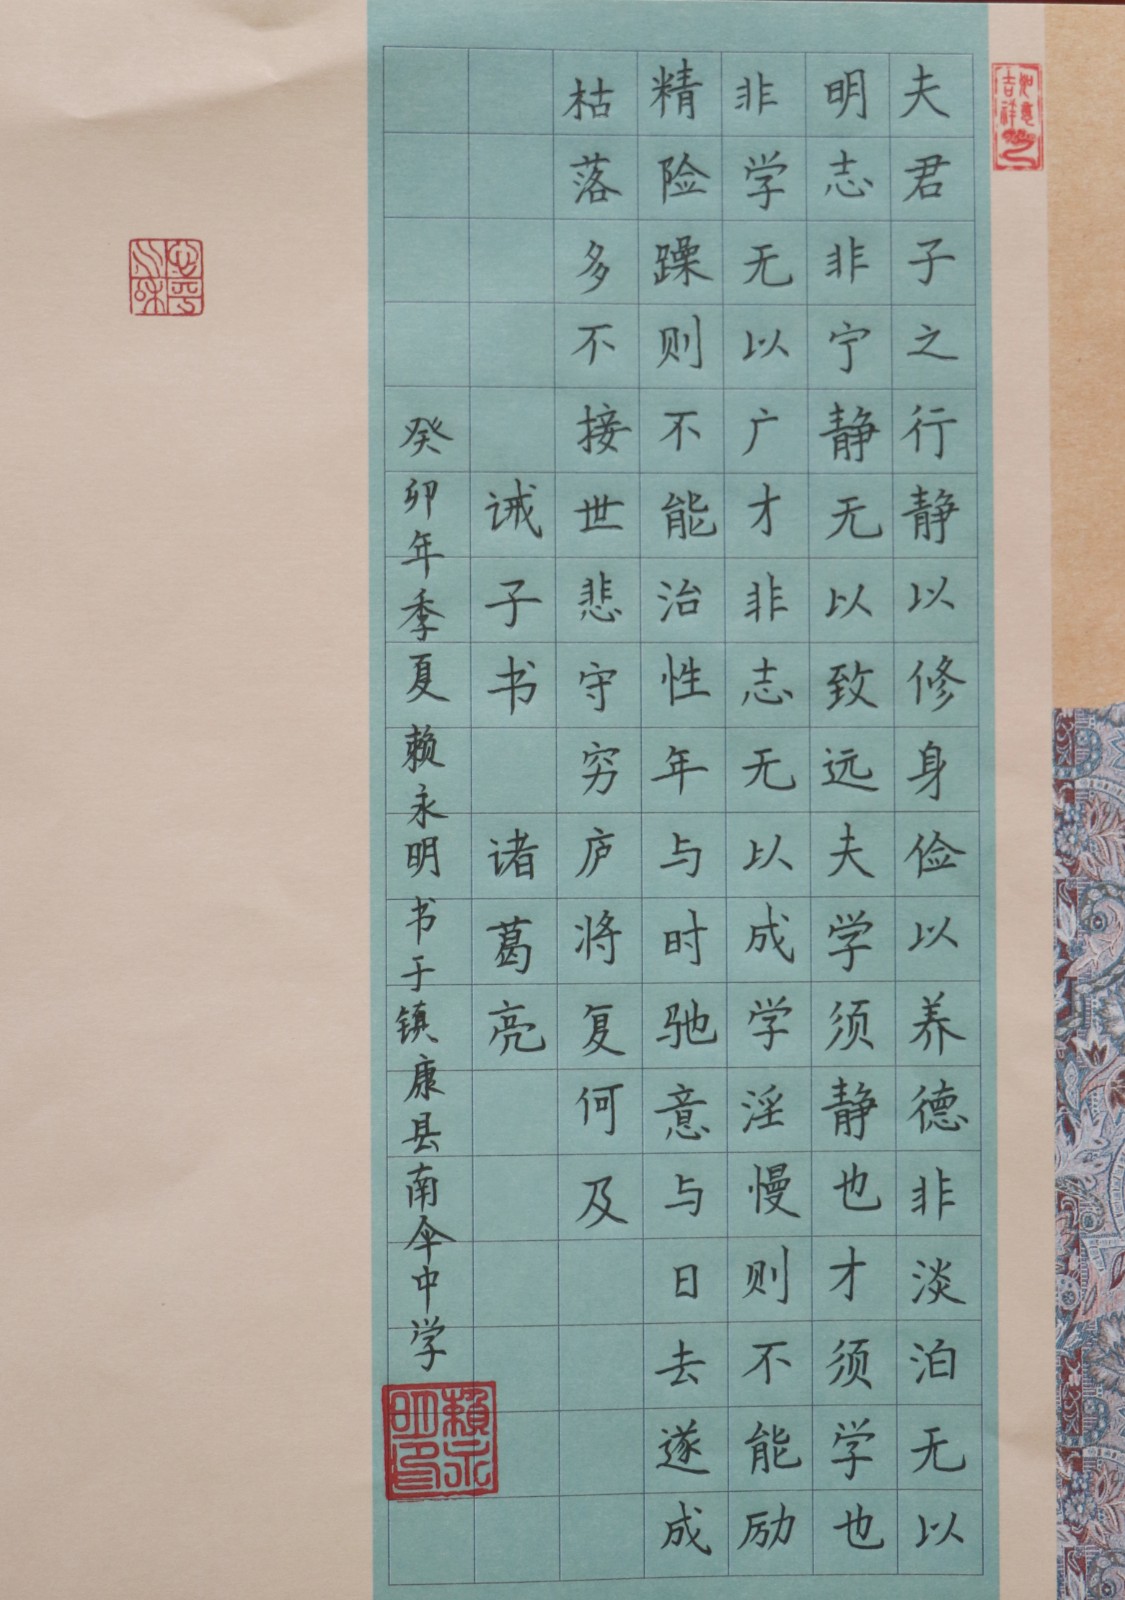 如意吉祥
夫君子之行静以修身俭以养德非淡泊无以
明志非宁静无以致远夫学须静也才须学也
非学无以广才非志无以成学淫慢则不能励
精险躁则不能治性年与时驰意与日去遂成
枯落多不接世悲守穷庐将复何及
诫子书 诸葛亮
癸卯年季夏赖永明书于镇康县南伞中学
賴永明印